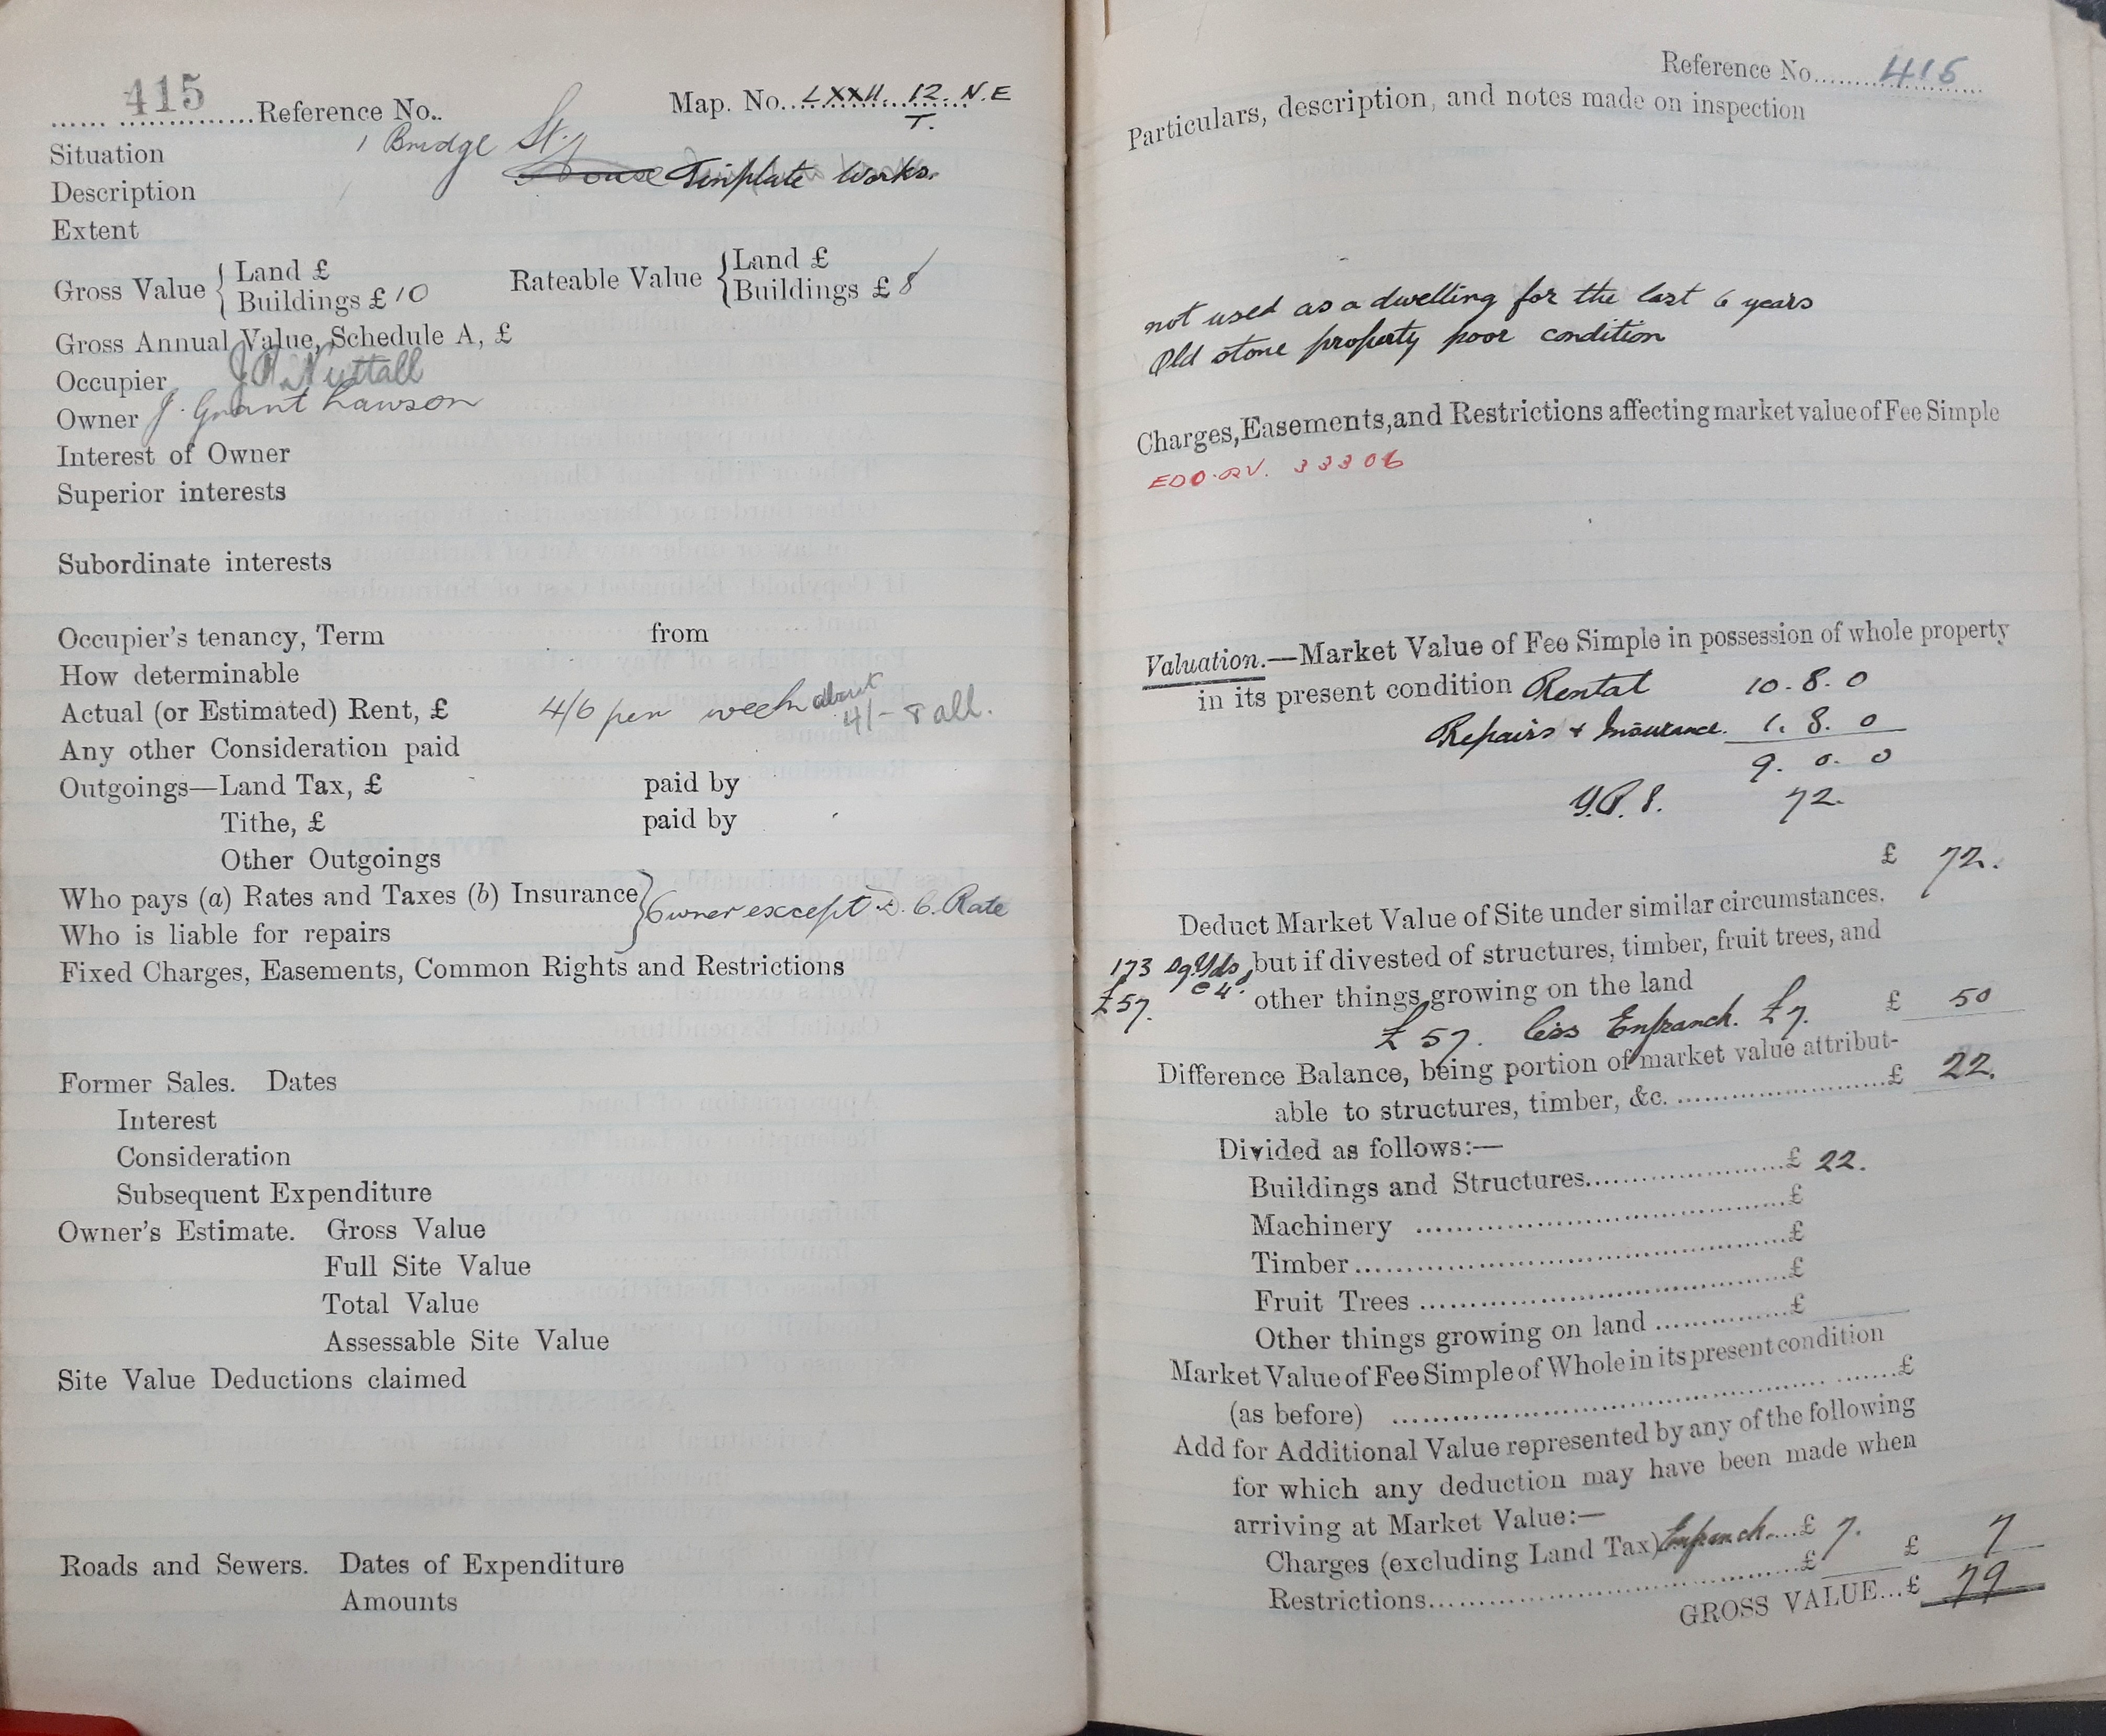 415 Reference No.. Map. No. LXXII. 12. N.E
T.
Situation 1 Bridge St.
Description House Tinplate Works.
Extent
Gross Value { Land £
Buildings £ 10
Rateable Value { Land £
Buildings £ 8
Gross Annual Value, Schedule A, £
Occupier Nuttall
Owner J. Grant Lawson
Interest of Owner
Superior interests
Subordinate interests
Occupier's tenancy, Term from
How determinable
Actual (or Estimated) Rent, £ 4/6 per week about
4/- 8 all.
Any other Consideration paid
Outgoings—Land Tax, £ paid by
Tithe, £ paid by
Other Outgoings
Who pays (a) Rates and Taxes (b) Insurance }
Owner except D. C. Rate
Who is liable for repairs
Fixed Charges, Easements, Common Rights and Restrictions
Former Sales. Dates
Interest
Consideration
Subsequent Expenditure
Owner's Estimate. Gross Value
Full Site Value
Total Value
Assessable Site Value
Site Value Deductions claimed
Roads and Sewers. Dates of Expenditure
Amounts
Reference No. 415
Particulars, description, and notes made on inspection
not used as a dwelling for the last 6 years
Old stone property poor condition
Charges, Easements, and Restrictions affecting market value of Fee Simple
33306
Valuation.—Market Value of Fee Simple in possession of whole property
in its present condition Rental 10. 8. 0
Repairs & Insurance. 1. 8. 0
9. 0. 0
Y.P. 8. 72.
£ 72.
Deduct Market Value of Site under similar circumstances,
173 Sq. Yds. but if divested of structures, timber, fruit trees, and
@ 4'. other things growing on the land £ 50
£57.
£57. less Enfranch. £7.
Difference Balance, being portion of market value attribut-
able to structures, timber, &c. £ 22.
Divided as follows:—
Buildings and Structures £ 22.
Machinery £
Timber £
Fruit Trees £
Other things growing on land £
Market Value of Fee Simple of Whole in its present condition
(as before) £
Add for Additional Value represented by any of the following
for which any deduction may have been made when
arriving at Market Value:—
Charges (excluding Land Tax) Enfranch. £ 7. £ 7
Restrictions £
GROSS VALUE...£ 79